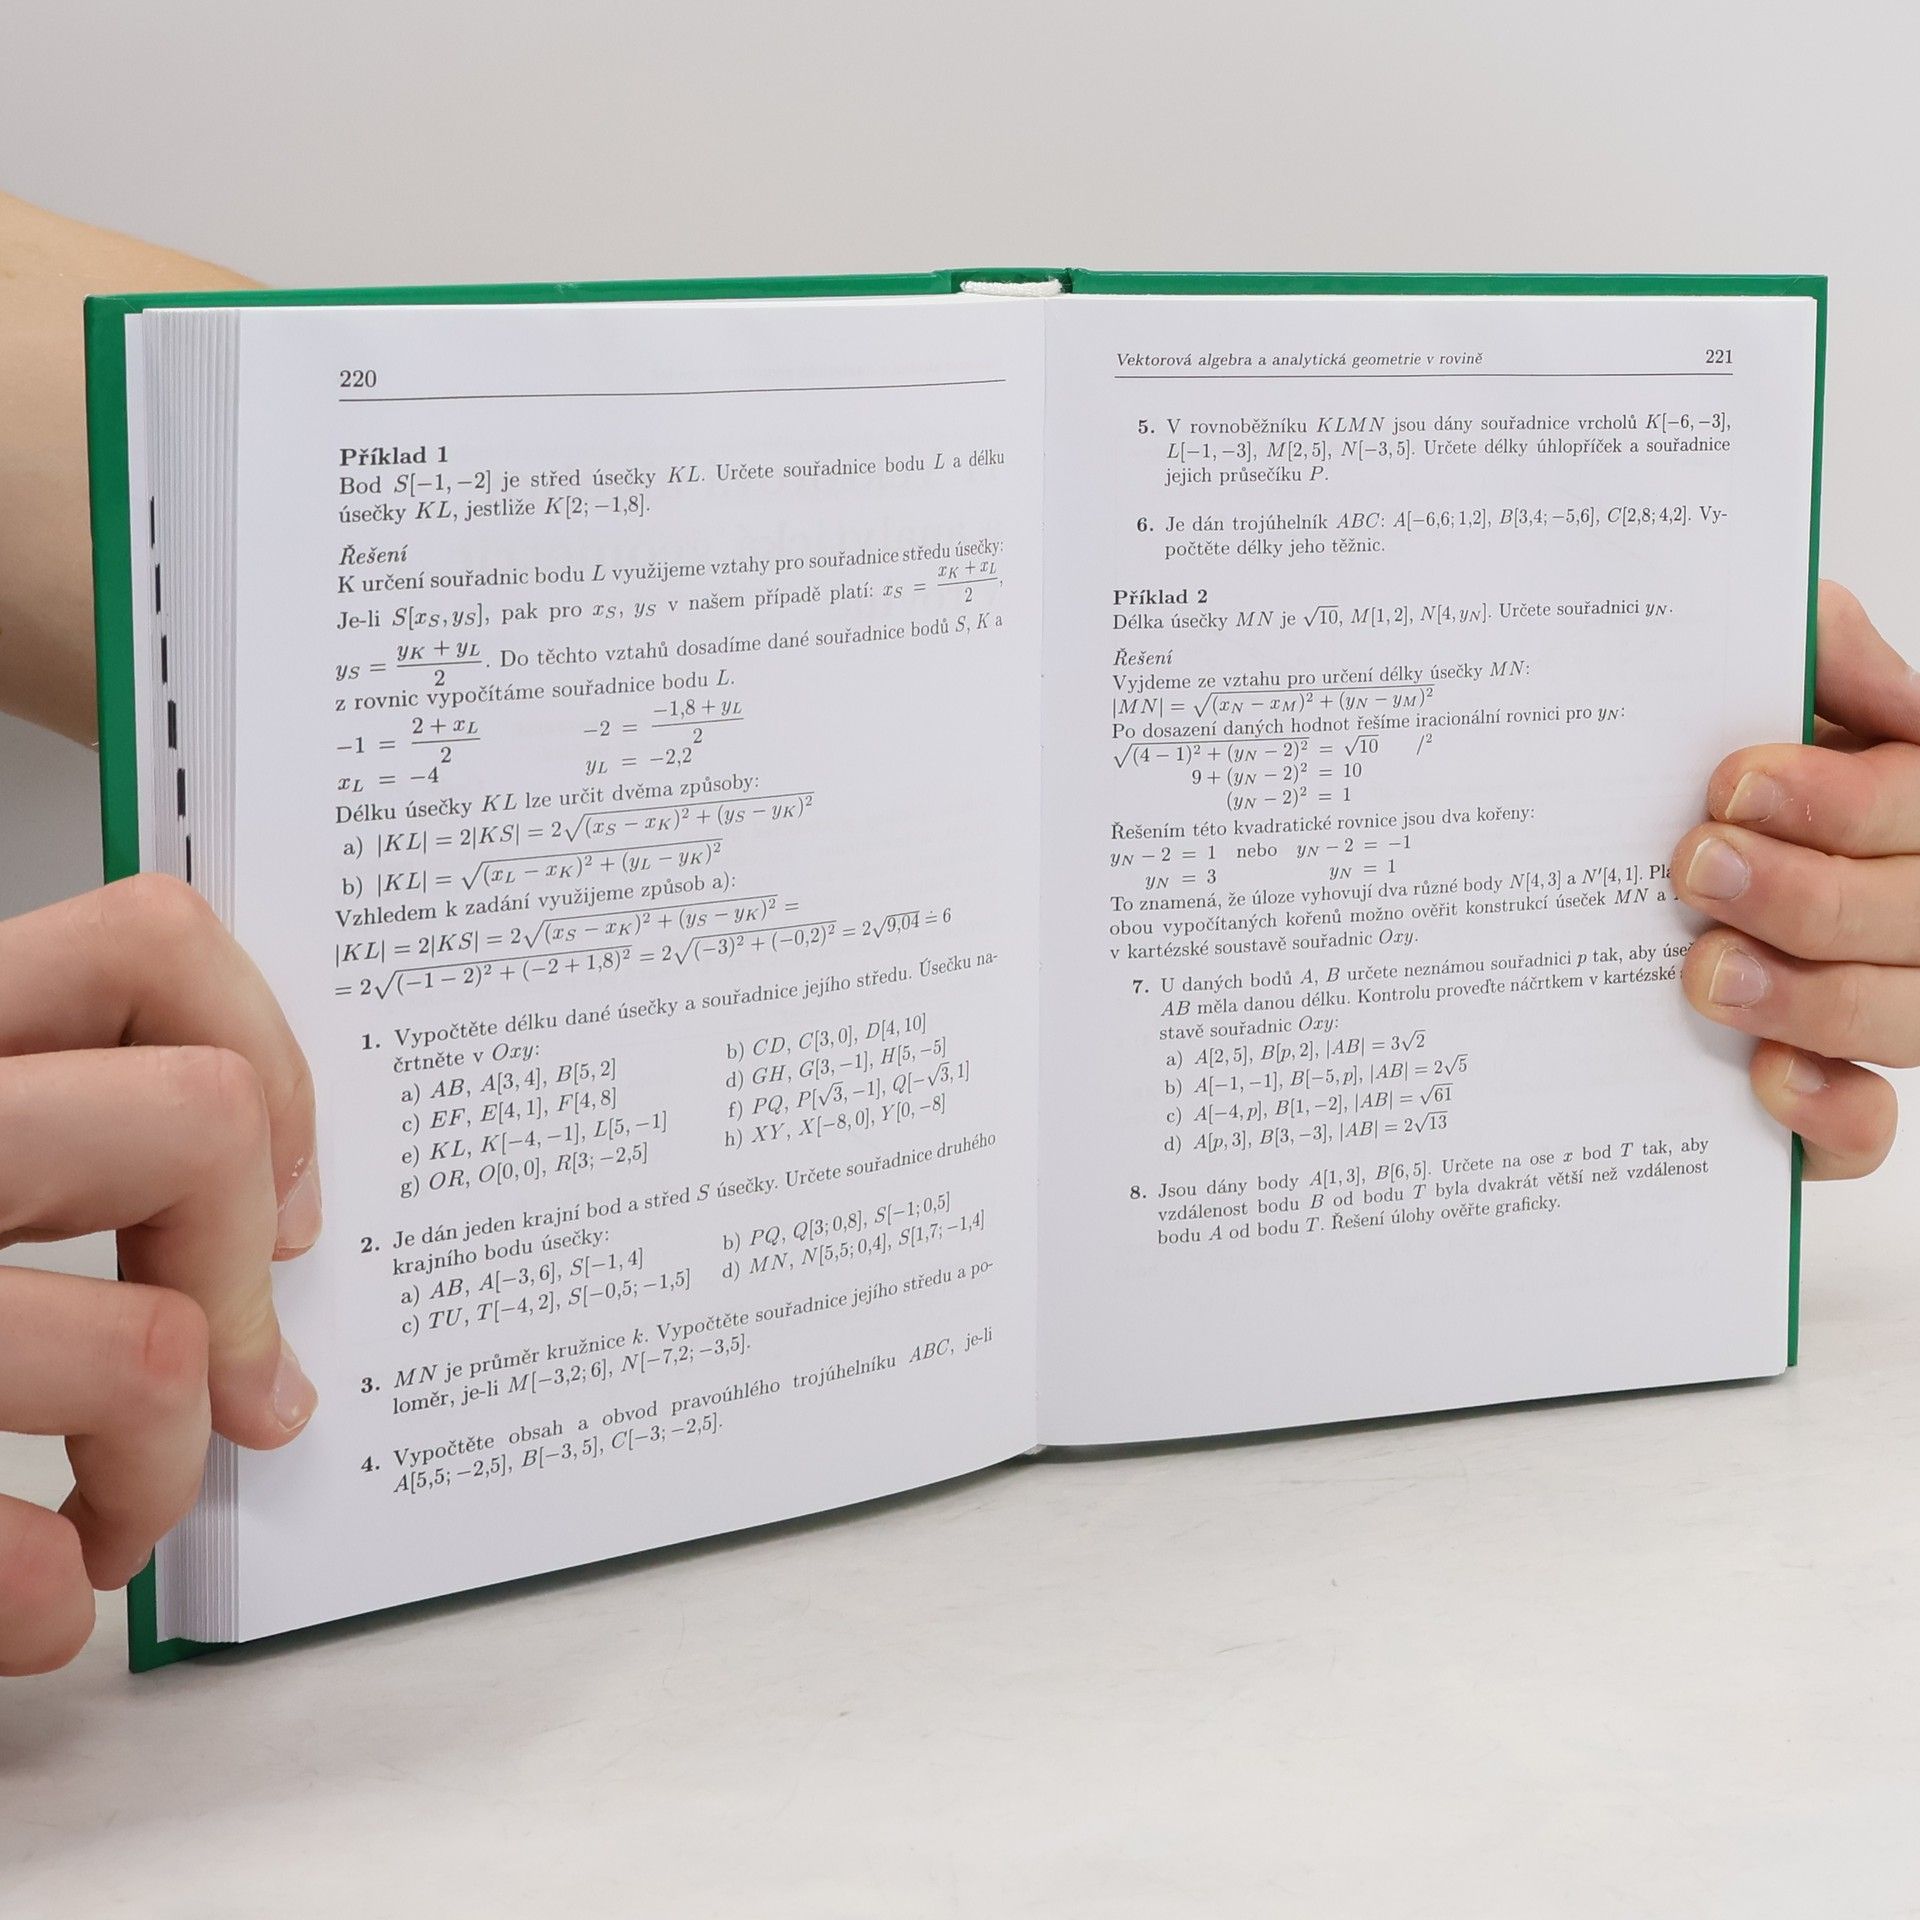 220
Příklad 1
Bod S[−1, −2] je střed úsečky KL. Určete souřadnice bodu L a délku
úsečky KL, jestliže K[2; −1,8].
Řešení
K určení souřadnic bodu L využijeme vztahy pro souřadnice středu úsečky:
Je-li S[x_S, y_S], pak pro x_S, y_S v našem případě platí: x_S = (x_K + x_L)/2,
y_S = (y_K + y_L)/2. Do těchto vztahů dosadíme dané souřadnice bodů S, K a
z rovnic vypočítáme souřadnice bodu L.
−1 = (2 + x_L)/2 −2 = (−1,8 + y_L)/2
x_L = −4 y_L = −2,2
Délku úsečky KL lze určit dvěma způsoby:
a) |KL| = 2|KS| = 2√((x_S − x_K)² + (y_S − y_K)²)
b) |KL| = √((x_L − x_K)² + (y_L − y_K)²)
Vzhledem k zadání využijeme způsob a):
|KL| = 2|KS| = 2√((x_S − x_K)² + (y_S − y_K)²) =
= 2√((−1 − 2)² + (−2 + 1,8)²) = 2√((−3)² + (−0,2)²) = 2√9,04 ≐ 6
1. Vypočtěte délku dané úsečky a souřadnice jejího středu. Úsečku na-
črtněte v Oxy:
a) AB, A[3, 4], B[5, 2] b) CD, C[3, 0], D[4, 10]
c) EF, E[4, 1], F[4, 8] d) GH, G[3, −1], H[5, −5]
e) KL, K[−4, −1], L[5, −1] f) PQ, P[√3, −1], Q[−√3, 1]
g) OR, O[0, 0], R[3; −2,5] h) XY, X[−8, 0], Y[0, −8]
2. Je dán jeden krajní bod a střed S úsečky. Určete souřadnice druhého
krajního bodu úsečky:
a) AB, A[−3, 6], S[−1, 4] b) PQ, Q[3; 0,8], S[−1; 0,5]
c) TU, T[−4, 2], S[−0,5; −1,5] d) MN, N[5,5; 0,4], S[1,7; −1,4]
3. MN je průměr kružnice k. Vypočtěte souřadnice jejího středu a po-
loměr, je-li M[−3,2; 6], N[−7,2; −3,5].
4. Vypočtěte obsah a obvod pravoúhlého trojúhelníku ABC, je-li
A[5,5; −2,5], B[−3, 5], C[−3; −2,5].
Vektorová algebra a analytická geometrie v rovině 221
5. V rovnoběžníku KLMN jsou dány souřadnice vrcholů K[−6, −3],
L[−1, −3], M[2, 5], N[−3, 5]. Určete délky úhlopříček a souřadnice
jejich průsečíku P.
6. Je dán trojúhelník ABC: A[−6,6; 1,2], B[3,4; −5,6], C[2,8; 4,2]. Vy-
počtěte délky jeho těžnic.
Příklad 2
Délka úsečky MN je √10, M[1, 2], N[4, y_N]. Určete souřadnici y_N.
Řešení
Vyjdeme ze vztahu pro určení délky úsečky MN:
|MN| = √((x_N − x_M)² + (y_N − y_M)²)
Po dosazení daných hodnot řešíme iracionální rovnici pro y_N:
√((4 − 1)² + (y_N − 2)²) = √10 /²
9 + (y_N − 2)² = 10
(y_N − 2)² = 1
Řešením této kvadratické rovnice jsou dva kořeny:
y_N − 2 = 1 nebo y_N − 2 = −1
y_N = 3 y_N = 1
To znamená, že úloze vyhovují dva různé body N[4, 3] a N′[4, 1].
obou vypočítaných kořenů možno ověřit konstrukcí úseček MN a
v kartézské soustavě souřadnic Oxy.
7. U daných bodů A, B určete neznámou souřadnici p tak, aby
AB měla danou délku. Kontrolu proveďte náčrtkem v kartézské
stavě souřadnic Oxy:
a) A[2, 5], B[p, 2], |AB| = 3√2
b) A[−1, −1], B[−5, p], |AB| = 2√5
c) A[−4, p], B[1, −2], |AB| = √61
d) A[p, 3], B[3, −3], |AB| = 2√13
8. Jsou dány body A[1, 3], B[6, 5]. Určete na ose x bod T tak, aby
vzdálenost bodu B od bodu T byla dvakrát větší než vzdálenost
bodu A od bodu T. Řešení úlohy ověřte graficky.